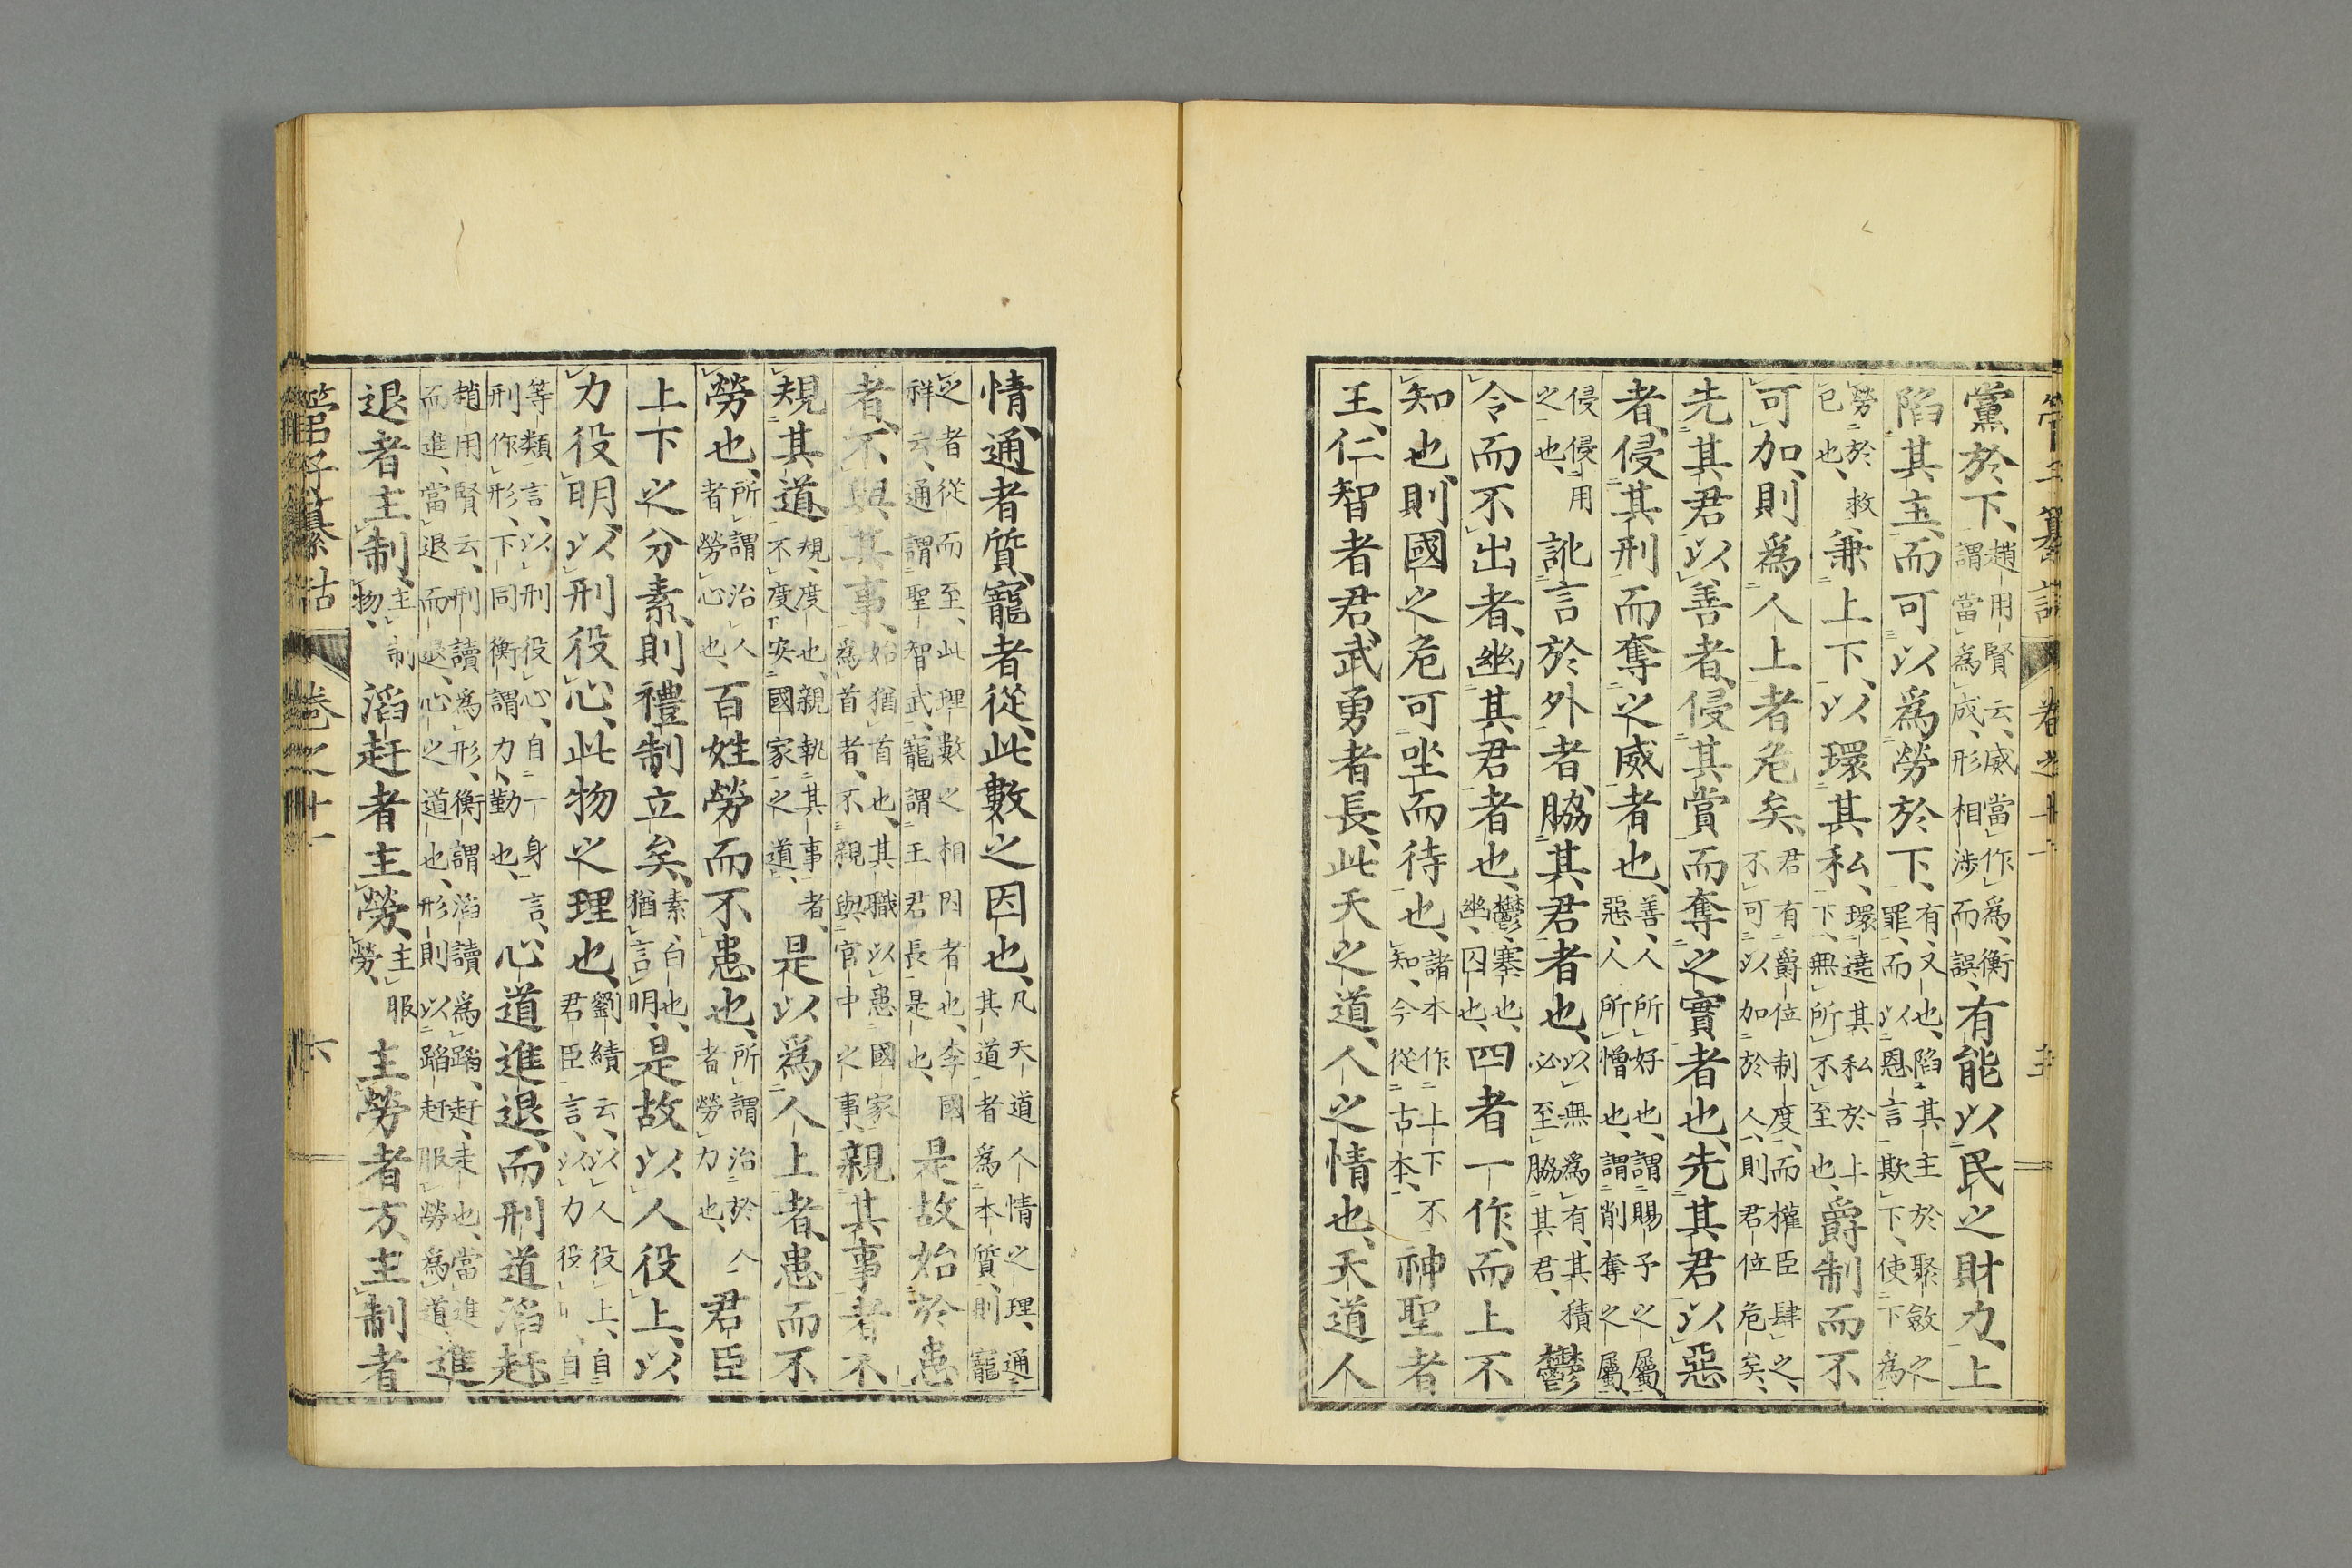 黨於下、趙用賢云、威當作爲、衡謂當爲成、形相涉而誤、有能以民之財力、上
陷其主、而可以爲勞於下、有、又也、陷其主於聚斂之罪、而以恩言欺下、使下爲
勞於救已也、兼上下、以環其私、環遶其私於上下、無所不至也、爵制而不
可加、則爲人上者危矣、君有爵位制度、而權臣肆之、不可以加於人、則君位危矣、
先其君以善者、侵其賞而奪之實者也、先其君以惡
者、侵其刑而奪之威者也、善、人所好也、謂賜予之屬、惡、人所憎也、謂削奪之屬、
侵侵用之也、訛言於外者、脇其君者也、以無爲有、其積必至脇其君、鬱
令而不出者、幽其君者也、鬱、塞也、幽、囚也、四者一作、而上不
知也、則國之危可坐而待也、諸本作上下不知、今從古本、神聖者
王、仁智者君、武勇者長、此天之道、人之情也、天道人
情、通者質、寵者從、此數之因也、凡天道人情之理、通其道者爲本質、則寵
之者從而至、此理數之相因者也、李國祥云、通謂聖智武、寵謂王君長是也、是故始於患
者、不與其事、始猶首也、其職以患國家爲首者、不親與官中之事、親其事者不
規其道、規、度也、親執其事者、不度安國家之道、是以爲人上者、患而不
勞也、所謂治人者勞心也、百姓勞而不患也、所謂治於人者勞力也、君臣
上下之分素、則禮制立矣、素、白也、猶言明、是故以人役上、以
力役明、以刑役心、此物之理也、劉績云、以人役上、自君臣言、以力役明、自
等類言、以刑役心、自一身言、刑作形、下同、衡謂力、勤也、心道進退、而刑道滔赶、
趙用賢云、刑讀爲形、衡謂滔讀爲蹈、赶、走也、當進而進、當退而退、心之道也、形則以蹈赶服勞爲道、進
退者主制、主制物、滔赶者主勞、主服勞、主勞者方、主制者
管子纂詁　卷之十一　六